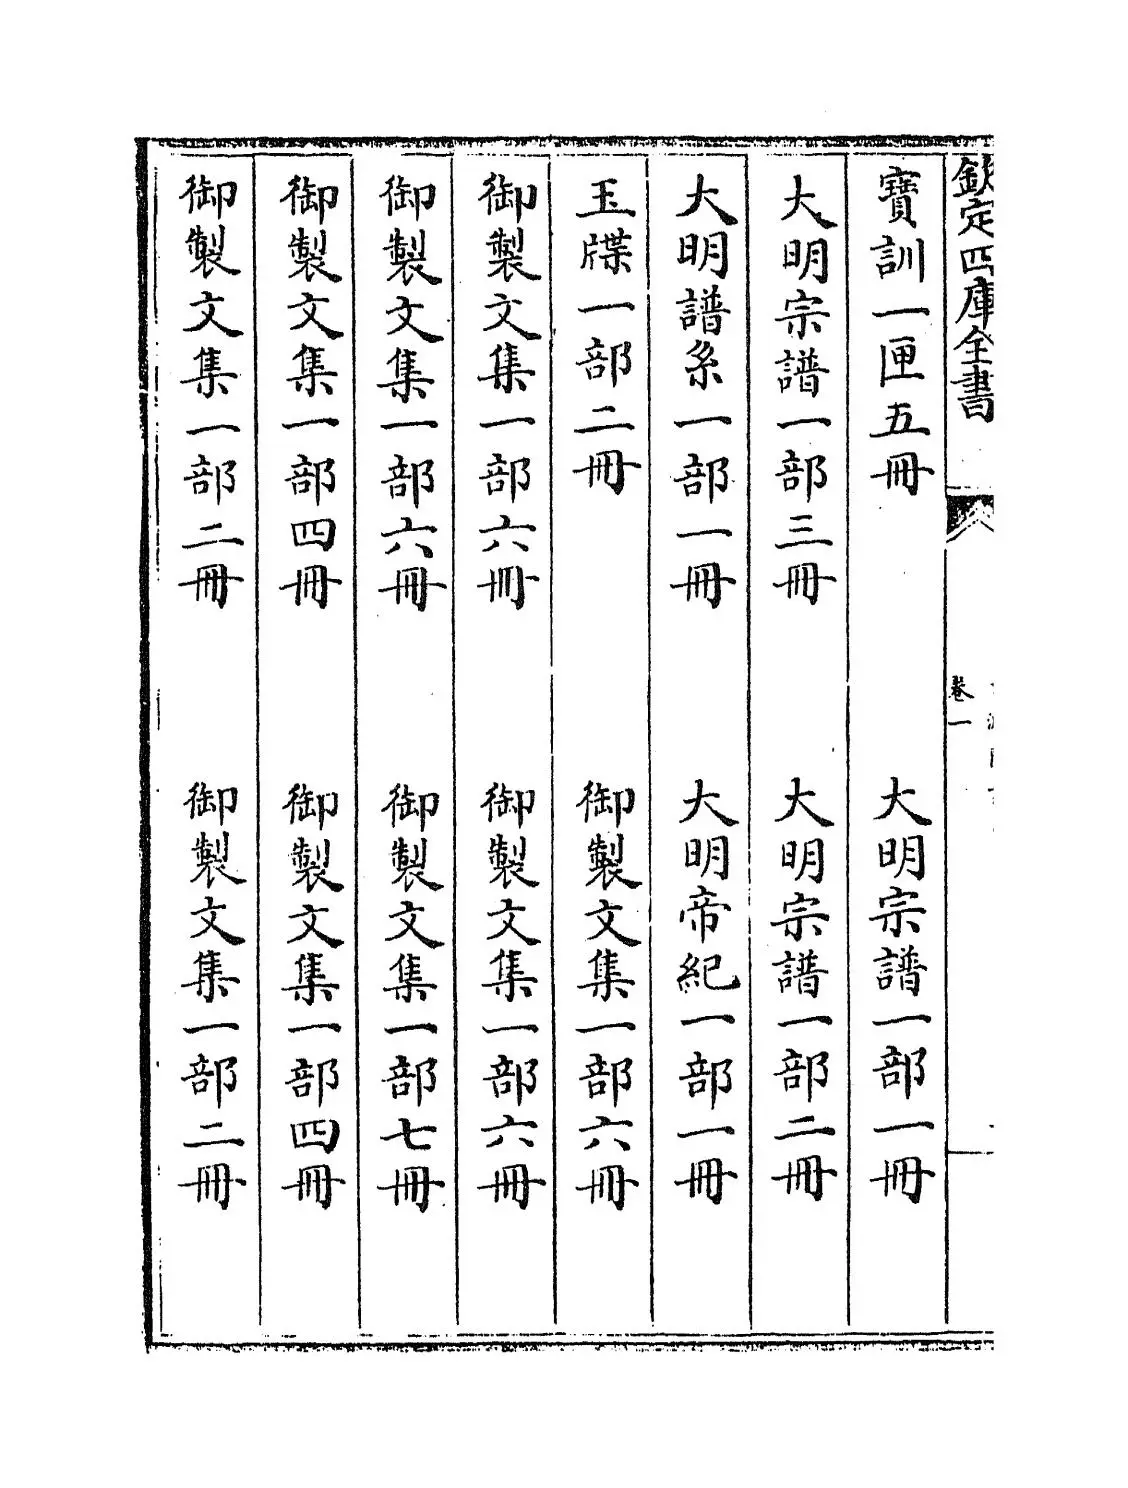 欽定四庫全書
卷一
寶訓一匣五冊　大明宗譜一部一冊
大明宗譜一部三冊　大明宗譜一部二冊
大明譜系一部一冊　大明帝紀一部一冊
玉牒一部二冊　御製文集一部六冊
御製文集一部六冊　御製文集一部六冊
御製文集一部六冊　御製文集一部七冊
御製文集一部四冊　御製文集一部四冊
御製文集一部二冊　御製文集一部二冊